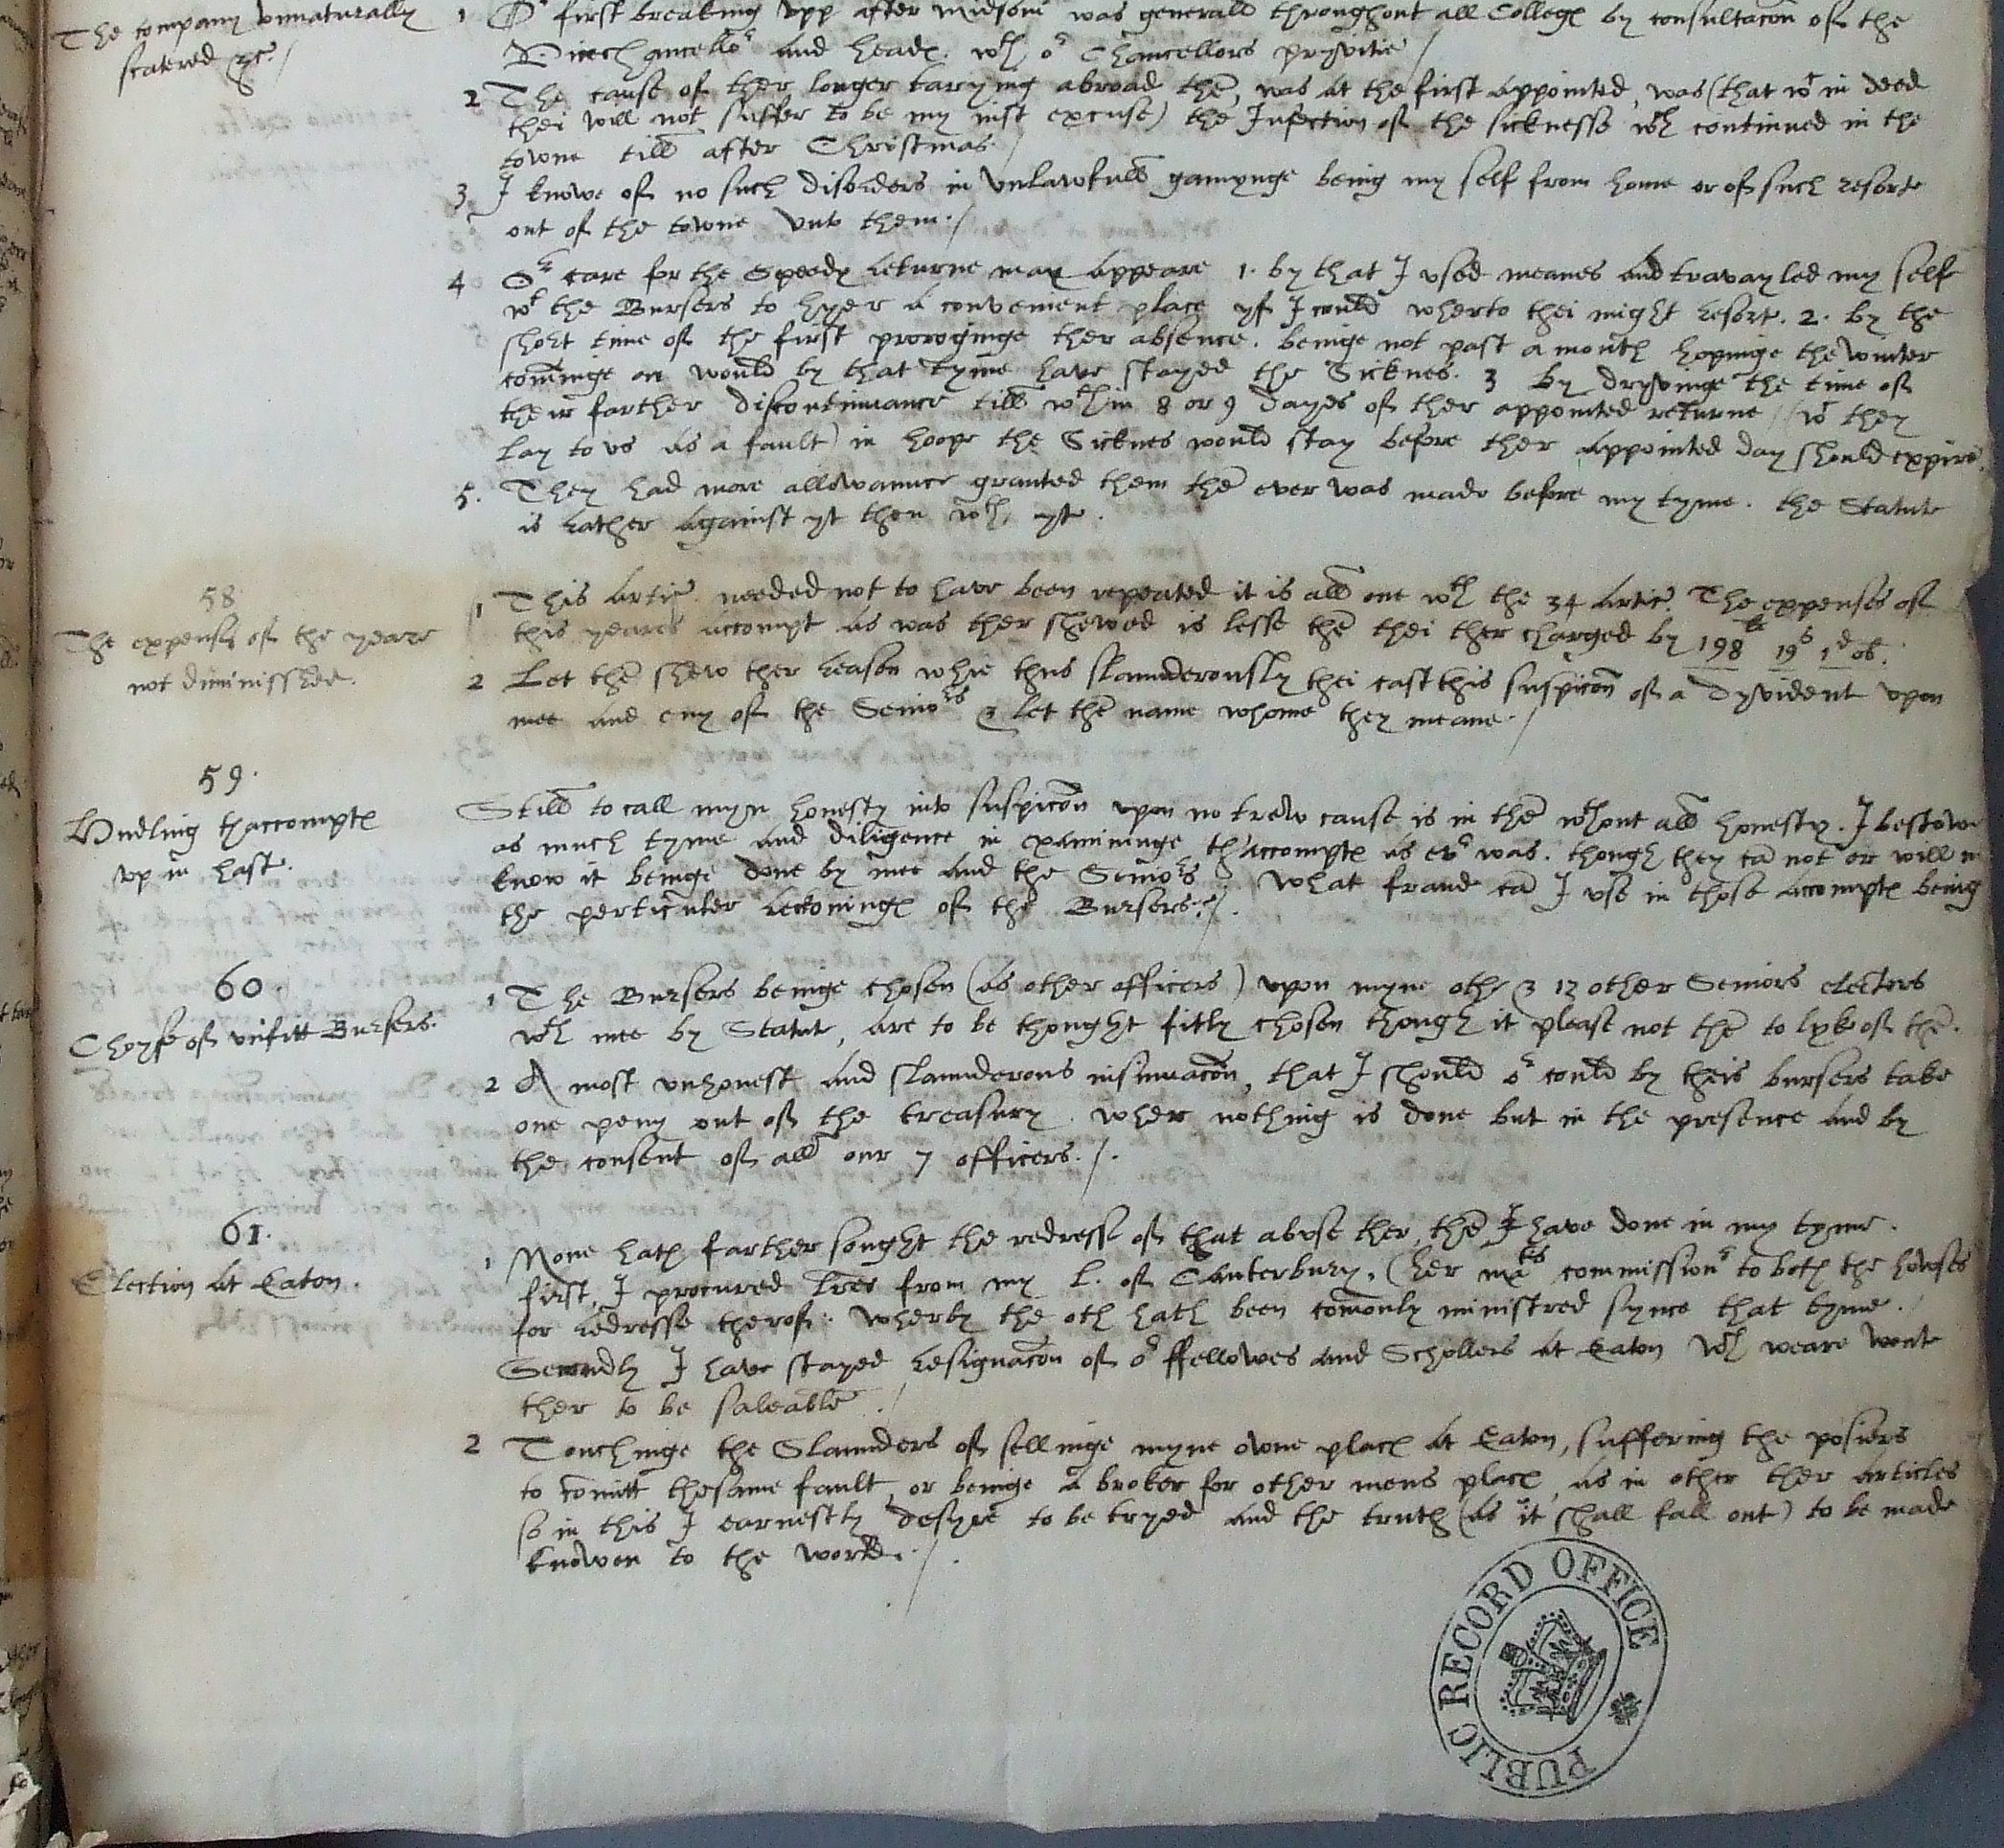 The company vnnaturally
scatered &c. /
1 Or first breaking vpp after midsomer was generall throughout all Colleges by consultacon of the
Vicechancellor and heades. wth or Chancellors pryvitie /
2 The cause of ther longer tarying abroad then, was at the first appointed, was (that wc in deed
thei will not suffer to be my iust excuse) the Infection of the sicknesse wch continued in the
towne till after Christmas. /
3 I knowe of no such disorders in vnlawfull gamynge being my self from home or of such resorte
out of the towne vnto them. /
4 Or care for the Speedy returne may appeare 1. by that I vsed meanes and travayled my self
wt the Bursers to hyer a convenient place yf I could wherto thei might resort. 2. by the
short time of the first proroginge ther absence. beinge not past a month hopinge the winter
comminge on would by that tyme have stayed the Sicknes. 3 by dryvinge the time of
their farther discontinuance till wthin 8 or 9 dayes of ther appointed returne / (wc they
lay to vs as a fault) in hoope the Sicknes would stay before ther appointed day should expire.
5. They had more allowaunce granted them then ever was made before my tyme. the Statute
is rather against yt then wth yt.
58
The expenses of the yeare
not diminisshed.
1 This artic. needed not to have been repeated it is all one wth the 34 artic. The expenses of
this yeares accompt as was ther shewed is lesse then thei ther charged by 198li 19s 1d ob.
2 Let them shew ther reason whie thus slaunderously thei cast this suspicon of a dyvident vpon
mee and eny of the Seniors & let them name whome they meane. /
59.
Hudling thaccomptes
vp in hast.
Still to call myn honesty into suspicon vpon no trew cause is in them wthout all honesty. I bestow
as much tyme and diligence in examininge thaccomptes as ever was. though they can not or will n
know it beinge done by mee and the Seniors. What fraude can I vse in those accomptes being
the perticuler reckoninges of the Bursers. /.
60.
Choyse of vnfitt Bursers.
1 The Bursers beinge chosen (as other officers) vpon myne oth & 12 other Seniors electers
wth mee by Statut, are to be thought fitly chosen though it please not them to lyke of them.
2 A most vnhonest and slaunderous insinuacon, that I should or could by theis bursers take
one peny out of the treasury. wher nothing is done but in the presence and by
the consent of all our 7 officers. /.
61.
Election at Eaton.
1 None hath farther sought the redresse of that abvse ther, then I have done in my tyme.
first, I procured lres from my l. of Canterbury, (her mats commissionr to both the howses
for redresse therof. wherby the oth hath been comonly ministred synce that tyme. /
Secondly I have stayed resignacon of or ffellowes and Schollers at Eaton wch weare wont
ther to be saleable. /
2 Touchinge the Slaunders of sellinge myne owne places at Eaton, suffering the posiers
to comitt thesame fault, or beinge a broker for other mens places, as in other ther articles
so in this I earnestly desyre to be tryed and the truth (as it shall fall out) to be made
knowen to the world. /.
PUBLIC RECORD OFFICE